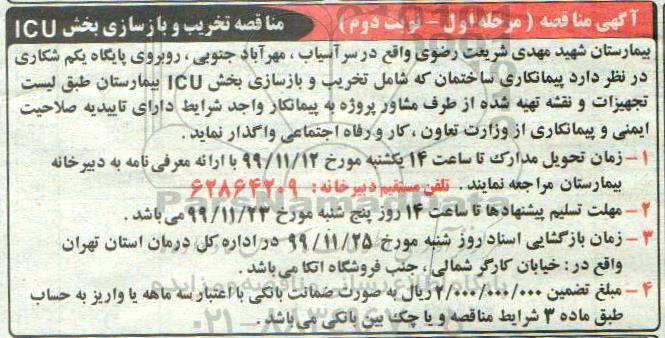 آگهی مناقصه ( مرحله اول - نوبت دوم )
مناقصه تخریب و بازسازی بخش ICU
بیمارستان شهید مهدی شریعت رضوی واقع در سرآسیاب ، مهرآباد جنوبی ، روبروی پایگاه یکم شکاری
در نظر دارد پیمانکاری ساختمان که شامل تخریب و بازسازی بخش ICU بیمارستان طبق لیست
تجهیزات و نقشه تهیه شده از طرف مشاور پروژه به پیمانکار واجد شرایط دارای تاییدیه صلاحیت
ایمنی و پیمانکاری از وزارت تعاون ، کار و رفاه اجتماعی واگذار نماید .
۱ - زمان تحویل مدارک تا ساعت ۱۴ یکشنبه مورخ ۹۹/۱۱/۱۲ با ارائه معرفی نامه به دبیرخانه
بیمارستان مراجعه نمایند . تلفن مستقیم دبیرخانه : ۶۲۸۶۴۲۰۹
۲ - مهلت تسلیم پیشنهادها تا ساعت ۱۴ روز پنج شنبه مورخ ۹۹/۱۱/۲۳ می باشد .
۳ - زمان بازگشایی اسناد روز شنبه مورخ ۹۹/۱۱/۲۵ در اداره کل درمان استان تهران
واقع در : خیابان کارگر شمالی ، جنب فروشگاه اتکا می باشد .
۴ - مبلغ تضمین ۲/۰۰۰/۰۰۰/۰۰۰ ریال به صورت ضمانت بانکی با اعتبار سه ماهه یا واریز به حساب
طبق ماده ۳ شرایط مناقصه و یا چک بین بانکی می باشد .